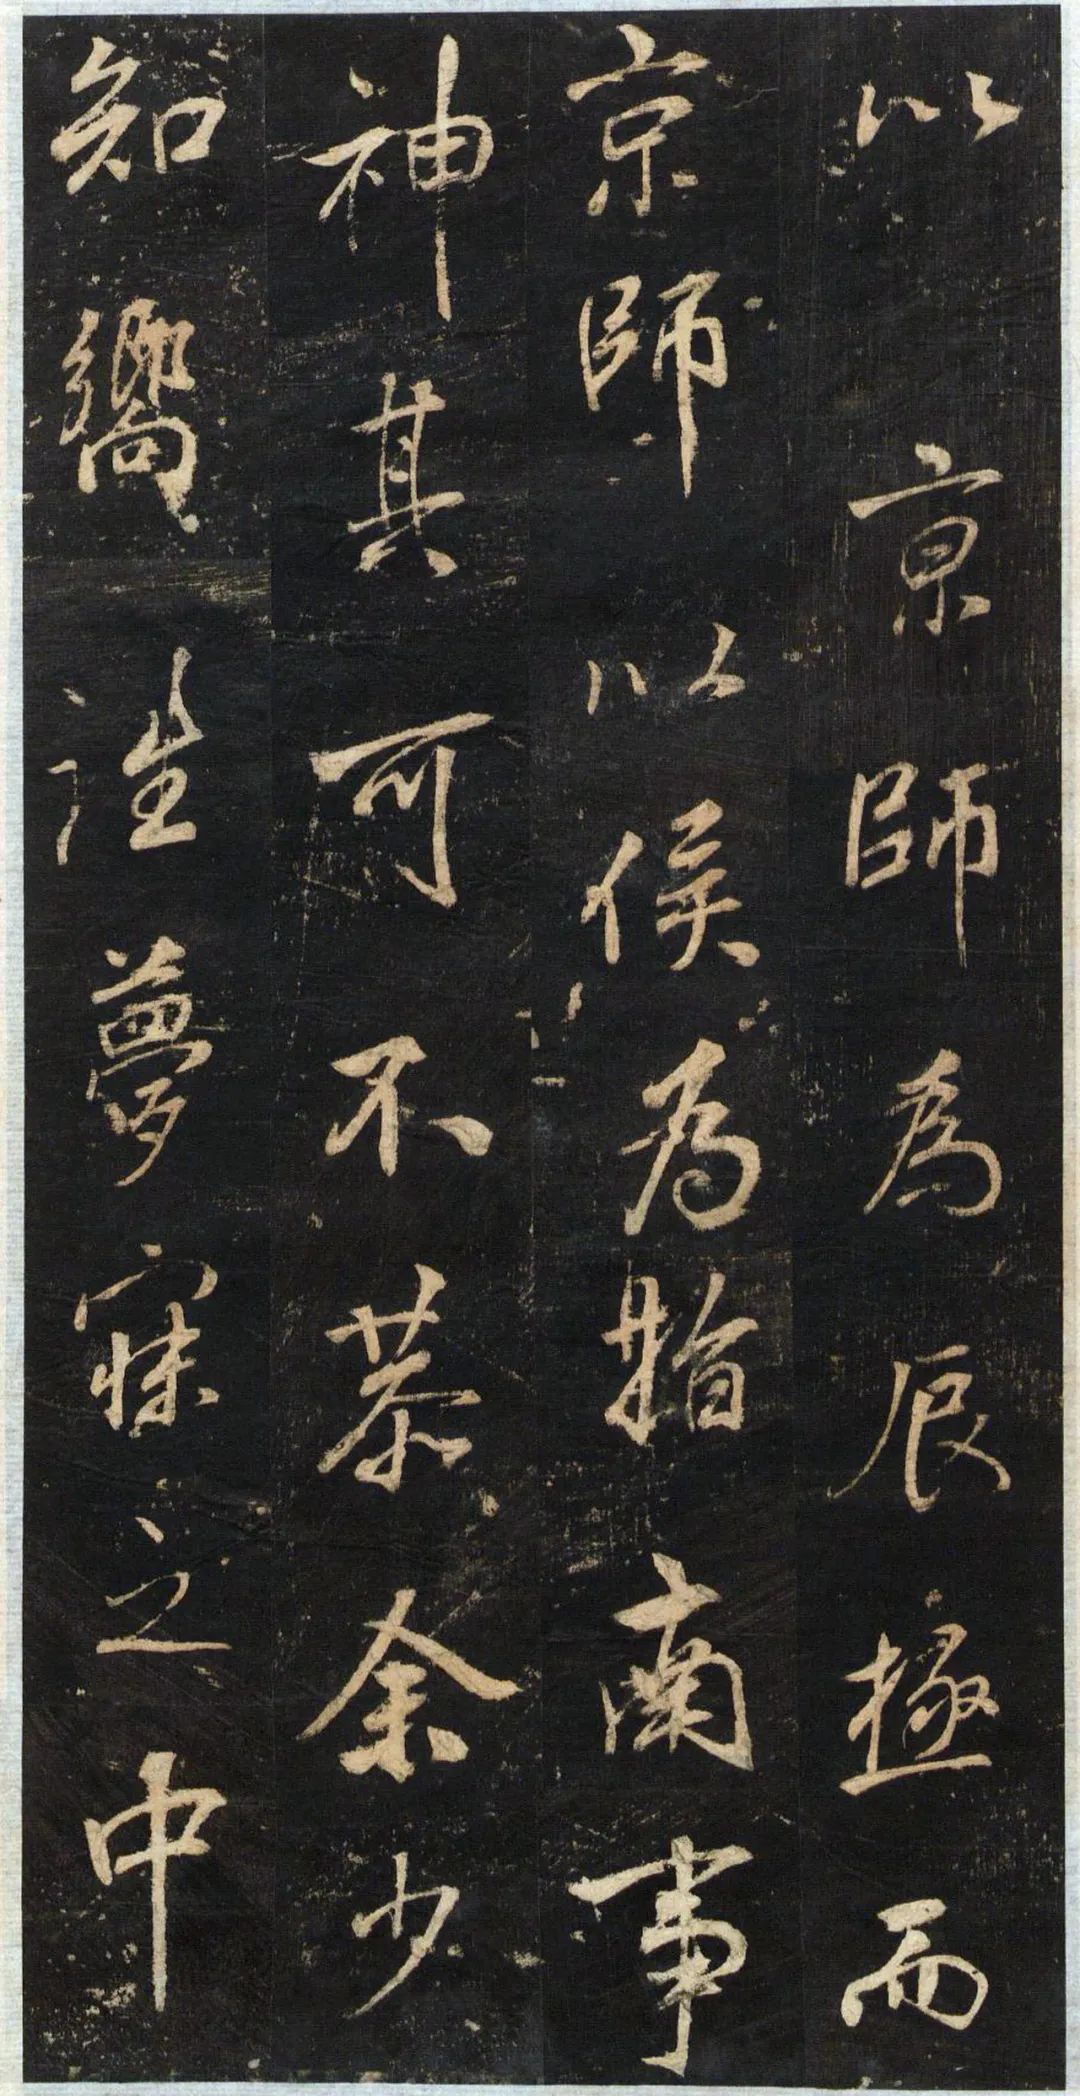 以京師為辰極而
京師以侯為指南事
神其可不恭余少
知嚮往夢寐之中